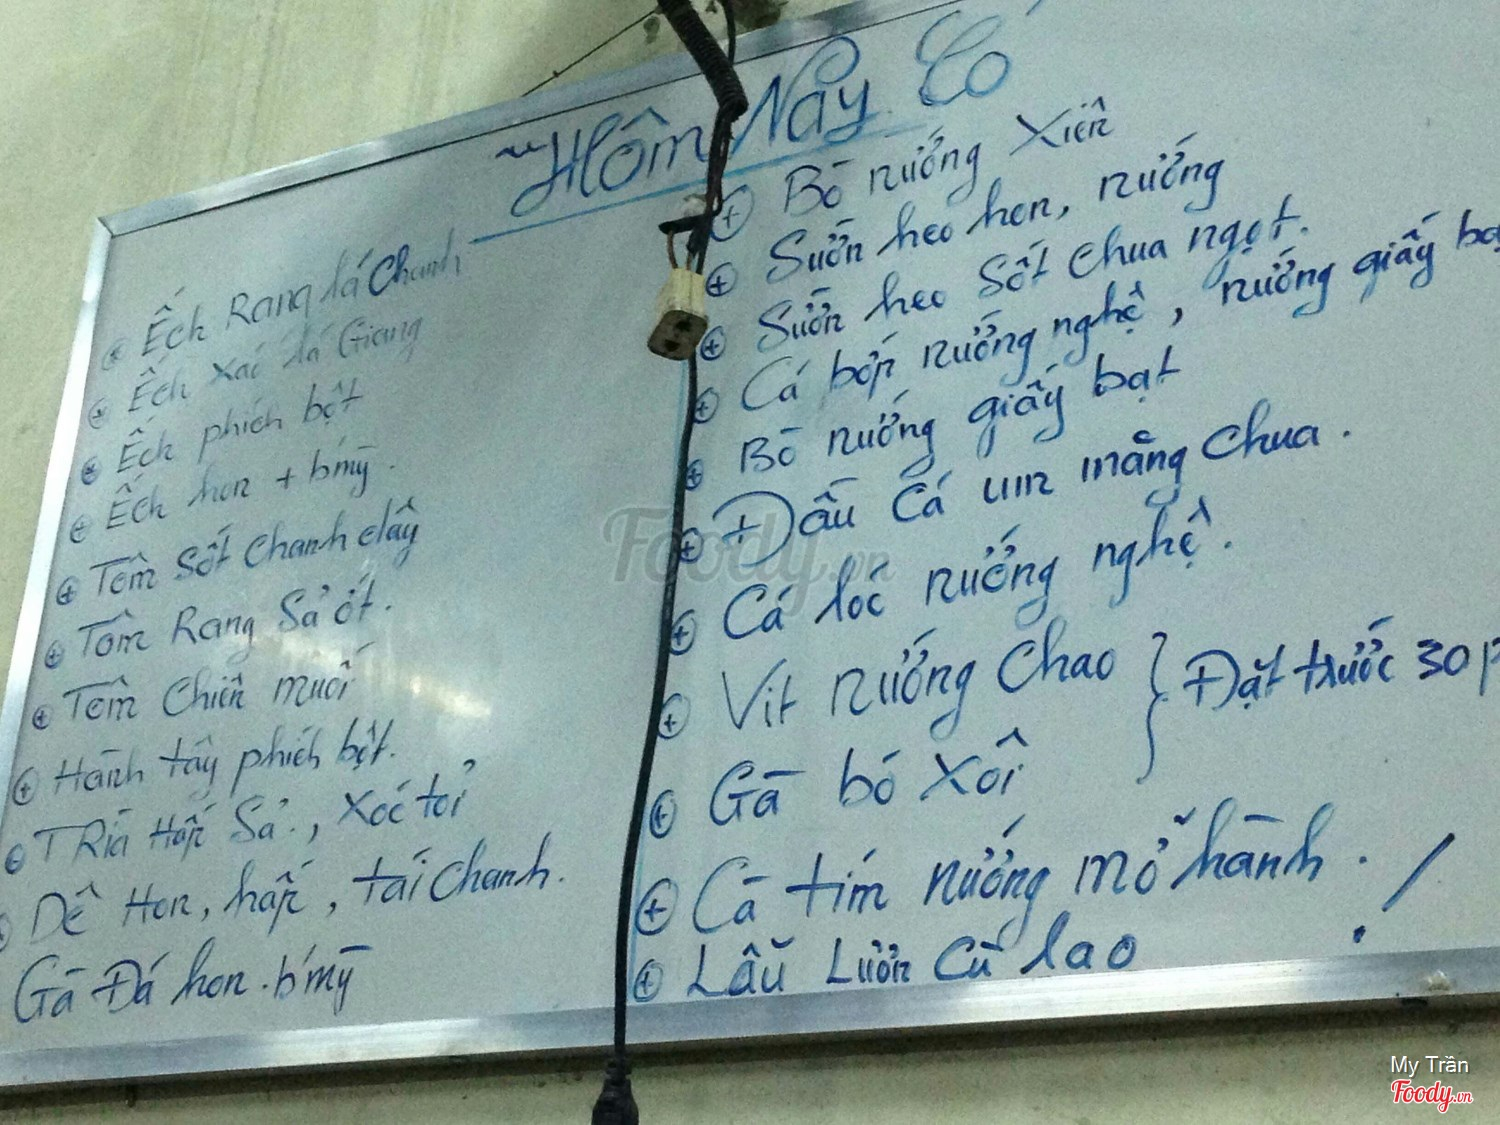 Hôm Nay Có
Ếch Rang lá Chanh
Ếch xào lá Giang
Ếch phích bột
Ếch hon + bmỳ.
Tôm Sốt Chanh dây
Tôm Rang Sả ớt.
Tôm Chiên muối
Hành tây phích bột.
TRìa Hấp Sả., Xóc tỏi
Dê Hon, hấp, tái Chanh.
Gà Đá hon. b'mỳ
Bò nướng Xiên
Sườn heo hon, nướng
Sườn heo Sốt Chua ngọt.
Cá bớp nướng nghệ, nướng giấy bạ
Bò nướng giấy bạt
Đầu Cá um măng Chua.
Cá lóc nướng nghệ.
Vịt nướng Chao
Gà bó Xôi
} Đặt trước 30p
Cà tím nướng mỡ hành.
Lẩu Lươn Cù lao
Foody.vn
My Trần
Foody.vn